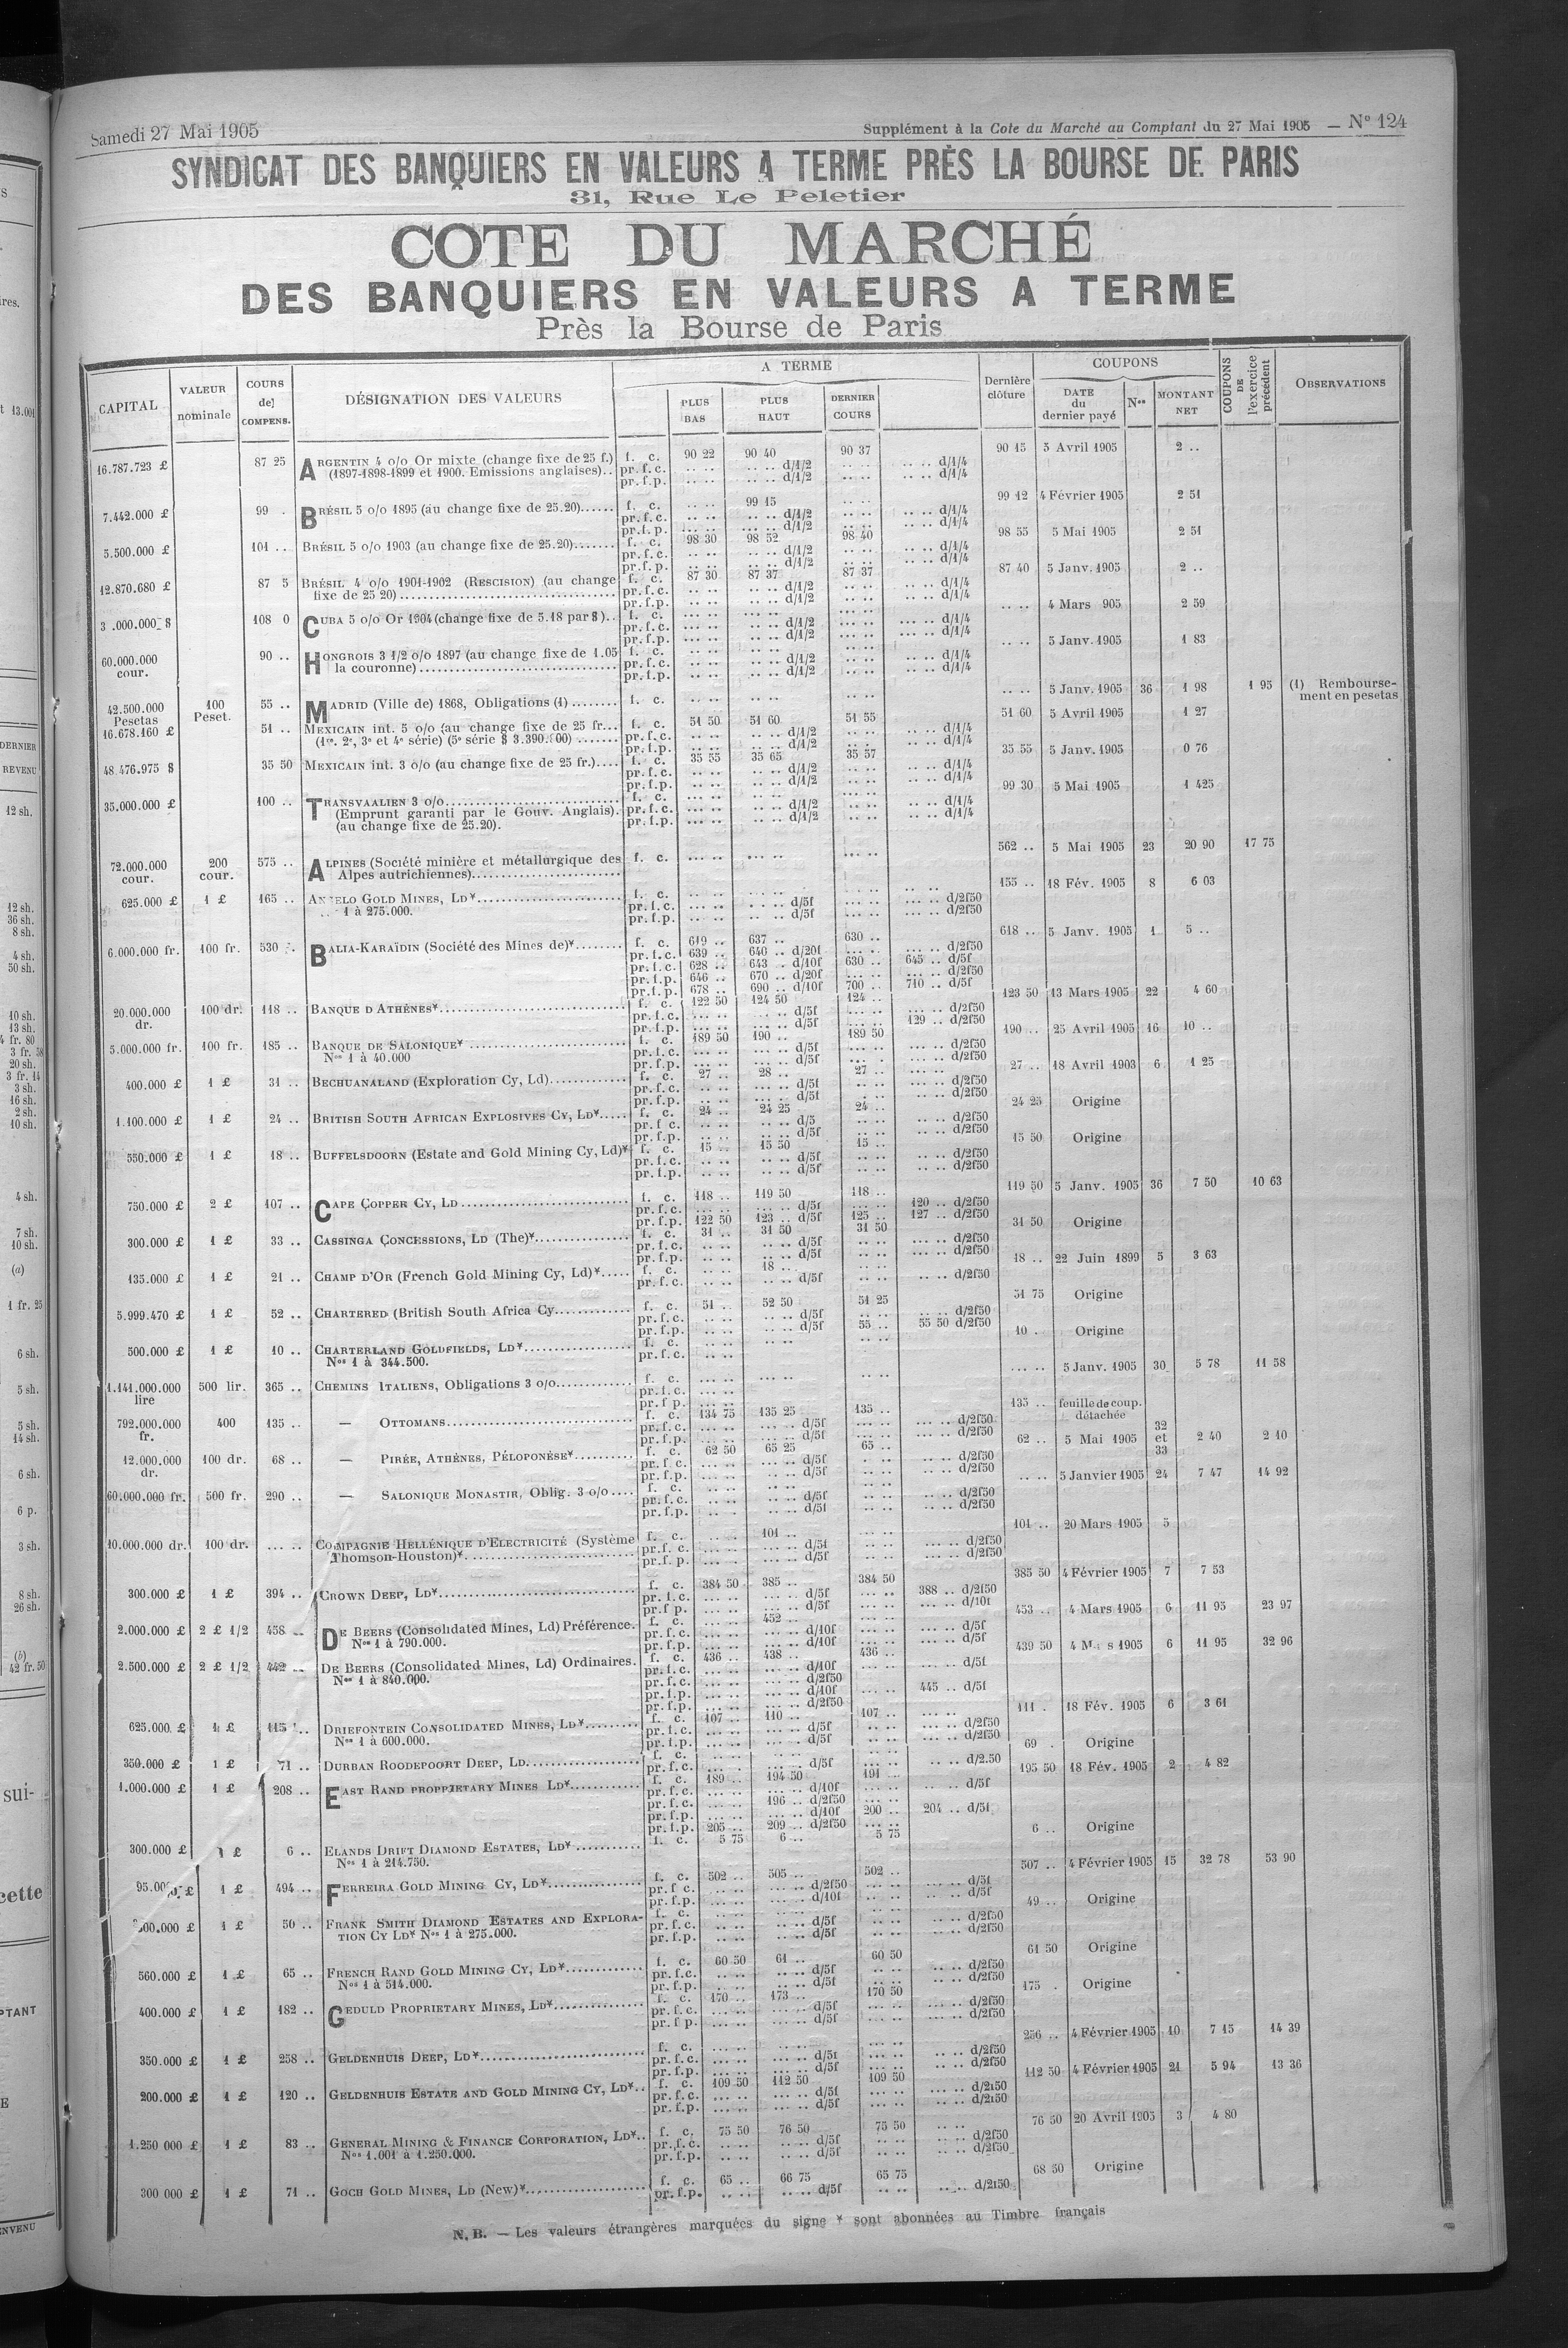 Samedi 27 Mai 1905
Supplément à la Cote du Marché au Comptant du 27 Mai 1905 — N° 124
SYNDICAT DES BANQUIERS EN VALEURS A TERME PRÈS LA BOURSE DE PARIS
31, Rue Le Peletier
COTE DU MARCHÉ
DES BANQUIERS EN VALEURS A TERME
Près la Bourse de Paris
CAPITAL
VALEUR nominale
COURS de COMPENS.
DÉSIGNATION DES VALEURS
A TERME
PLUS BAS
PLUS HAUT
DERNIER COURS
Dernière clôture
COUPONS
DATE du dernier payé
Nos
MONTANT NET
COUPONS DE l'exercice précédent
OBSERVATIONS
16.787.723 £ 87 25 ARGENTIN 4 o/o Or mixte (change fixe de 25 f.) f. c. 90 22 90 40 90 37 90 15 5 Avril 1905 2 ..
(1897-1898-1899 et 1900. Emissions anglaises).. pr.f.c. d/1/2 d/1/4
pr.f.p. d/1/2 d/1/4
7.442.000 £ 99 . BRÉSIL 5 o/o 1895 (au change fixe de 25.20)...... f. c. 99 15 99 12 4 Février 1905 2 51
pr.f.c. d/1/2 d/1/4
pr.f.p. d/1/2 d/1/4
5.500.000 £ 101 .. BRÉSIL 5 o/o 1903 (au change fixe de 25.20)....... f. c. 98 30 98 52 98 40 98 55 5 Mai 1905 2 51
pr.f.c. d/1/2 d/1/4
pr.f.p. d/1/2 d/1/4
12.870.680 £ 87 5 BRÉSIL 4 o/o 1901-1902 (RESCISION) (au change f. c. 87 30 87 37 87 37 87 40 5 Janv. 1905 2 ..
fixe de 25 20) pr.f.c. d/1/2 d/1/4
pr.f.p. d/1/2 d/1/4
3 .000.000 $ 108 0 CUBA 5 o/o Or 1904 (change fixe de 5.18 par $).. f. c. 4 Mars 905 2 59
pr.f.c. d/1/2 d/1/4
pr.f.p. d/1/2 d/1/4
60.000.000 cour. 90 .. HONGROIS 3 1/2 o/o 1897 (au change fixe de 1.05 f. c. 5 Janv. 1905 1 83
la couronne) pr.f.c. d/1/2 d/1/4
pr.f.p. d/1/2 d/1/4
42.500.000 Pesetas 100 Peset. 55 .. MADRID (Ville de) 1868, Obligations (1) ........ f. c. 5 Janv. 1905 36 1 98 1 95 (1) Remboursement en pesetas
16.678.160 £ 51 .. MEXICAIN int. 5 o/o (au change fixe de 25 fr... f. c. 51 50 51 60 51 55 51 60 5 Avril 1905 1 27
(1re, 2e, 3e et 4e série) (5e série $ 3.390. 00) ....... pr.f.c. d/1/2 d/1/4
pr.f.p. d/1/2 d/1/4
48 476.975 $ 35 50 MEXICAIN int. 3 o/o (au change fixe de 25 fr.).... f. c. 35 55 35 65 35 57 35 55 5 Janv. 1905 0 76
pr.f.c. d/1/2 d/1/4
pr.f.p. d/1/2 d/1/4
35.000.000 £ 100 .. TRANSVAALIEN 3 o/o f. c. 99 30 5 Mai 1905 1 425
(Emprunt garanti par le Gouv. Anglais). pr.f.c. d/1/2 d/1/4
(au change fixe de 25.20). pr.f.p. d/1/2 d/1/4
72.000.000 cour. 200 cour. 575 .. ALPINES (Société minière et métallurgique des f. c. 562 .. 5 Mai 1905 23 20 90 17 75
Alpes autrichiennes)
625.000 £ 1 £ 165 .. ANGELO GOLD MINES, LD¥ f. c. 155 .. 18 Fév. 1905 8 6 03
1 à 275.000. pr.f.c. d/5f d/2f50
pr.f.p. d/5f d/2f50
6.000.000 fr. 100 fr. 530 .. BALIA-KARAÏDIN (Société des Mines de)¥ f. c. 619 .. 637 .. 630 .. 618 .. 5 Janv. 1905 1 5 ..
pr.f.c. 639 .. 640 .. d/20f d/2f50
pr.f.c. 628 .. 643 .. d/10f 630 .. 645 .. d/5f
pr.f.p. 646 .. 670 .. d/20f d/2f50
pr.f.p. 678 .. 690 .. d/10f 700 .. 710 .. d/5f
20.000.000 dr. 100 dr. 118 .. BANQUE D'ATHÈNES¥ f. c. 122 50 124 50 124 .. 123 50 13 Mars 1905 22 4 60
pr.f.c. d/5f d/2f50
pr.f.p. d/5f 129 .. d/2f50
5.000.000 fr. 100 fr. 185 .. BANQUE DE SALONIQUE¥ f. c. 189 50 190 .. 189 50 190 .. 25 Avril 1905 16 10 ..
Nos 1 à 40.000 pr.f.c. d/5f d/2f50
pr.f.p. d/5f d/2f50
400.000 £ 1 £ 31 .. BECHUANALAND (Exploration Cy, Ld) f. c. 27 .. 28 .. 27 .. 27 .. 18 Avril 1903 6 1 25
pr.f.c. d/5f d/2f50
pr.f.p. d/5f d/2f50
1.100.000 £ 1 £ 24 .. BRITISH SOUTH AFRICAN EXPLOSIVES CY, LD¥ f. c. 24 .. 24 25 24 .. 24 25 Origine
pr.f.c. d/5 d/2f50
pr.f.p. d/5f d/2f50
550.000 £ 1 £ 18 .. BUFFELSDOORN (Estate and Gold Mining Cy, Ld)¥ f. c. 15 .. 15 50 15 .. 15 50 Origine
pr.f.c. d/5f d/2f50
pr.f.p. d/5f d/2f50
750.000 £ 2 £ 107 .. CAPE COPPER CY, LD f. c. 118 .. 119 50 118 .. 119 50 5 Janv. 1905 36 7 50 10 63
pr.f.c. d/5f 120 .. d/2f50
pr.f.p. 122 50 123 .. d/5f 125 .. 127 .. d/2f50
300.000 £ 1 £ 33 .. CASSINGA CONCESSIONS, LD (The)¥ f. c. 31 .. 31 50 31 50 31 50 Origine
pr.f.c. d/5f d/2f50
pr.f.p. d/5f d/2f50
135.000 £ 1 £ 21 .. CHAMP D'OR (French Gold Mining Cy, Ld)¥ f. c. 18 .. 18 .. 22 Juin 1899 5 3 63
pr.f.c. d/5f d/2f50
5.999.470 £ 1 £ 52 .. CHARTERED (British South Africa Cy f. c. 51 .. 52 50 51 25 51 75 Origine
pr.f.c. d/5f d/2f50
pr.f.p. d/5f 55 .. 55 50 d/2f50
500.000 £ 1 £ 10 .. CHARTERLAND GOLDFIELDS, LD¥ f. c. 10 . Origine
Nos 1 à 344.500. pr.f.c.
1.141.000.000 lire 500 lir. 365 .. CHEMINS ITALIENS, Obligations 3 o/o f. c. 5 Janv. 1905 30 5 78 11 58
pr.f.c.
pr.f.p.
792.000.000 fr. 400 135 .. — OTTOMANS f. c. 134 75 135 25 135 .. 135 .. feuille de coup. détachée
pr.f.c. d/5f d/2f50
pr.f.p. d/5f d/2f50
12.000.000 dr. 100 dr. 68 .. — PIRÉE, ATHÈNES, PÉLOPONÈSE¥ f. c. 62 50 65 25 65 .. 62 .. 5 Mai 1905 32 et 33 2 40 2 10
pr.f.c. d/5f d/2f50
pr.f.p. d/5f d/2f50
60.000.000 fr. 500 fr. 290 .. — SALONIQUE MONASTIR, Oblig. 3 o/o f. c. 5 Janvier 1905 24 7 47 14 92
pr.f.c. d/5f d/2f50
pr.f.p. d/5f d/2f50
10.000.000 dr. 100 dr. COMPAGNIE HELLÉNIQUE D'ELECTRICITÉ (Système f. c. 101 .. 101 .. 20 Mars 1905 5
Thomson-Houston)¥ pr.f.c. d/5f d/2f50
pr.f.p. d/5f d/2f50
300.000 £ 1 £ 394 .. CROWN DEEP, LD¥ f. c. 384 50 385 .. 384 50 385 50 4 Février 1905 7 7 53
pr.f.c. d/5f 388 .. d/2f50
pr.f.p. d/5f d/10f
2.000.000 £ 2 £ 1/2 458 .. DE BEERS (Consolidated Mines, Ld) Préférence. f. c. 452 .. 453 .. 4 Mars 1905 6 11 95 23 97
Nos 1 à 790.000. pr.f.c. d/10f d/5f
pr.f.p. d/10f d/5f
2.500.000 £ 2 £ 1/2 442 .. DE BEERS (Consolidated Mines, Ld) Ordinaires. f. c. 436 .. 438 .. 436 .. 439 50 4 M s 1905 6 11 95 32 96
Nos 1 à 840.000. pr.f.c. d/10f d/5f
pr.f.c. d/2f50
pr.f.p. d/10f 445 .. d/5f
pr.f.p. d/2f50
625.000 £ 1 £ 115 .. DRIEFONTEIN CONSOLIDATED MINES, LD¥ f. c. 107 .. 110 .. 107 .. 111 . 18 Fév. 1905 6 3 61
Nos 1 à 600.000. pr.f.c. d/5f d/2f50
pr.f.p. d/5f d/2f50
350.000 £ 1 £ 71 .. DURBAN ROODEPOORT DEEP, LD f. c. 69 . Origine
pr.f.c. d/5f d/2.50
1.000.000 £ 1 £ 208 .. EAST RAND PROPRIETARY MINES LD¥ f. c. 189 .. 194 50 191 .. 195 50 18 Fév. 1905 2 4 82
pr.f.c. d/10f d/5f
pr.f.c. 196 .. d/2f50
pr.f.p. d/10f 200 .. 204 .. d/5f
pr.f.p. 205 .. 209 .. d/2f50
300.000 £ 1 £ 6 .. ELANDS DRIFT DIAMOND ESTATES, LD¥ f. c. 5 75 6 .. 5 75 6 .. Origine
Nos 1 à 214.750.
95.00 £ 1 £ 494 .. FERREIRA GOLD MINING CY, LD¥ f. c. 502 .. 505 .. 502 .. 507 .. 4 Février 1905 15 32 78 53 90
pr.f.c. d/2f50 d/5f
pr.f.p. d/10f d/5f
00.000 £ 1 £ 50 .. FRANK SMITH DIAMOND ESTATES AND EXPLORA- f. c. 49 .. Origine
TION CY LD¥ Nos 1 à 275.000. pr.f.c. d/5f d/2f50
pr.f.p. d/5f d/2f50
560.000 £ 1 £ 65 .. FRENCH RAND GOLD MINING CY, LD¥ f. c. 60 50 61 .. 60 50 61 50 Origine
Nos 1 à 514.000. pr.f.c. d/5f d/2f50
pr.f.p. d/5f d/2f50
400.000 £ 1 £ 182 .. GEDULD PROPRIETARY MINES, LD¥ f. c. 170 .. 173 .. 170 50 175 . Origine
pr.f.c. d/5f d/2f50
pr.f.p. d/5f d/2f50
350.000 £ 1 £ 258 .. GELDENHUIS DEEP, LD¥ f. c. 256 .. 4 Février 1905 10 7 15 14 39
pr.f.c. d/5f d/2f50
pr.f.p. d/5f d/2f50
200.000 £ 1 £ 120 .. GELDENHUIS ESTATE AND GOLD MINING CY, LD¥ f. c. 109 50 112 50 109 50 112 50 4 Février 1905 21 5 94 13 36
pr.f.c. d/5f d/2f50
pr.f.p. d/5f d/2f50
1.250 000 £ 1 £ 83 .. GENERAL MINING & FINANCE CORPORATION, LD¥ f. c. 75 50 76 50 75 50 76 50 20 Avril 1905 3 4 80
Nos 1.001 à 1.250.000. pr.f.c. d/5f d/2f50
pr.f.p. d/5f d/2f50
300 000 £ 1 £ 71 .. GOCH GOLD MINES, LD (New)¥ f. c. 65 .. 66 75 65 75 68 50 Origine
pr.f.p. d/5f d/2f50
N. B. — Les valeurs étrangères marquées du signe ¥ sont abonnées au Timbre français